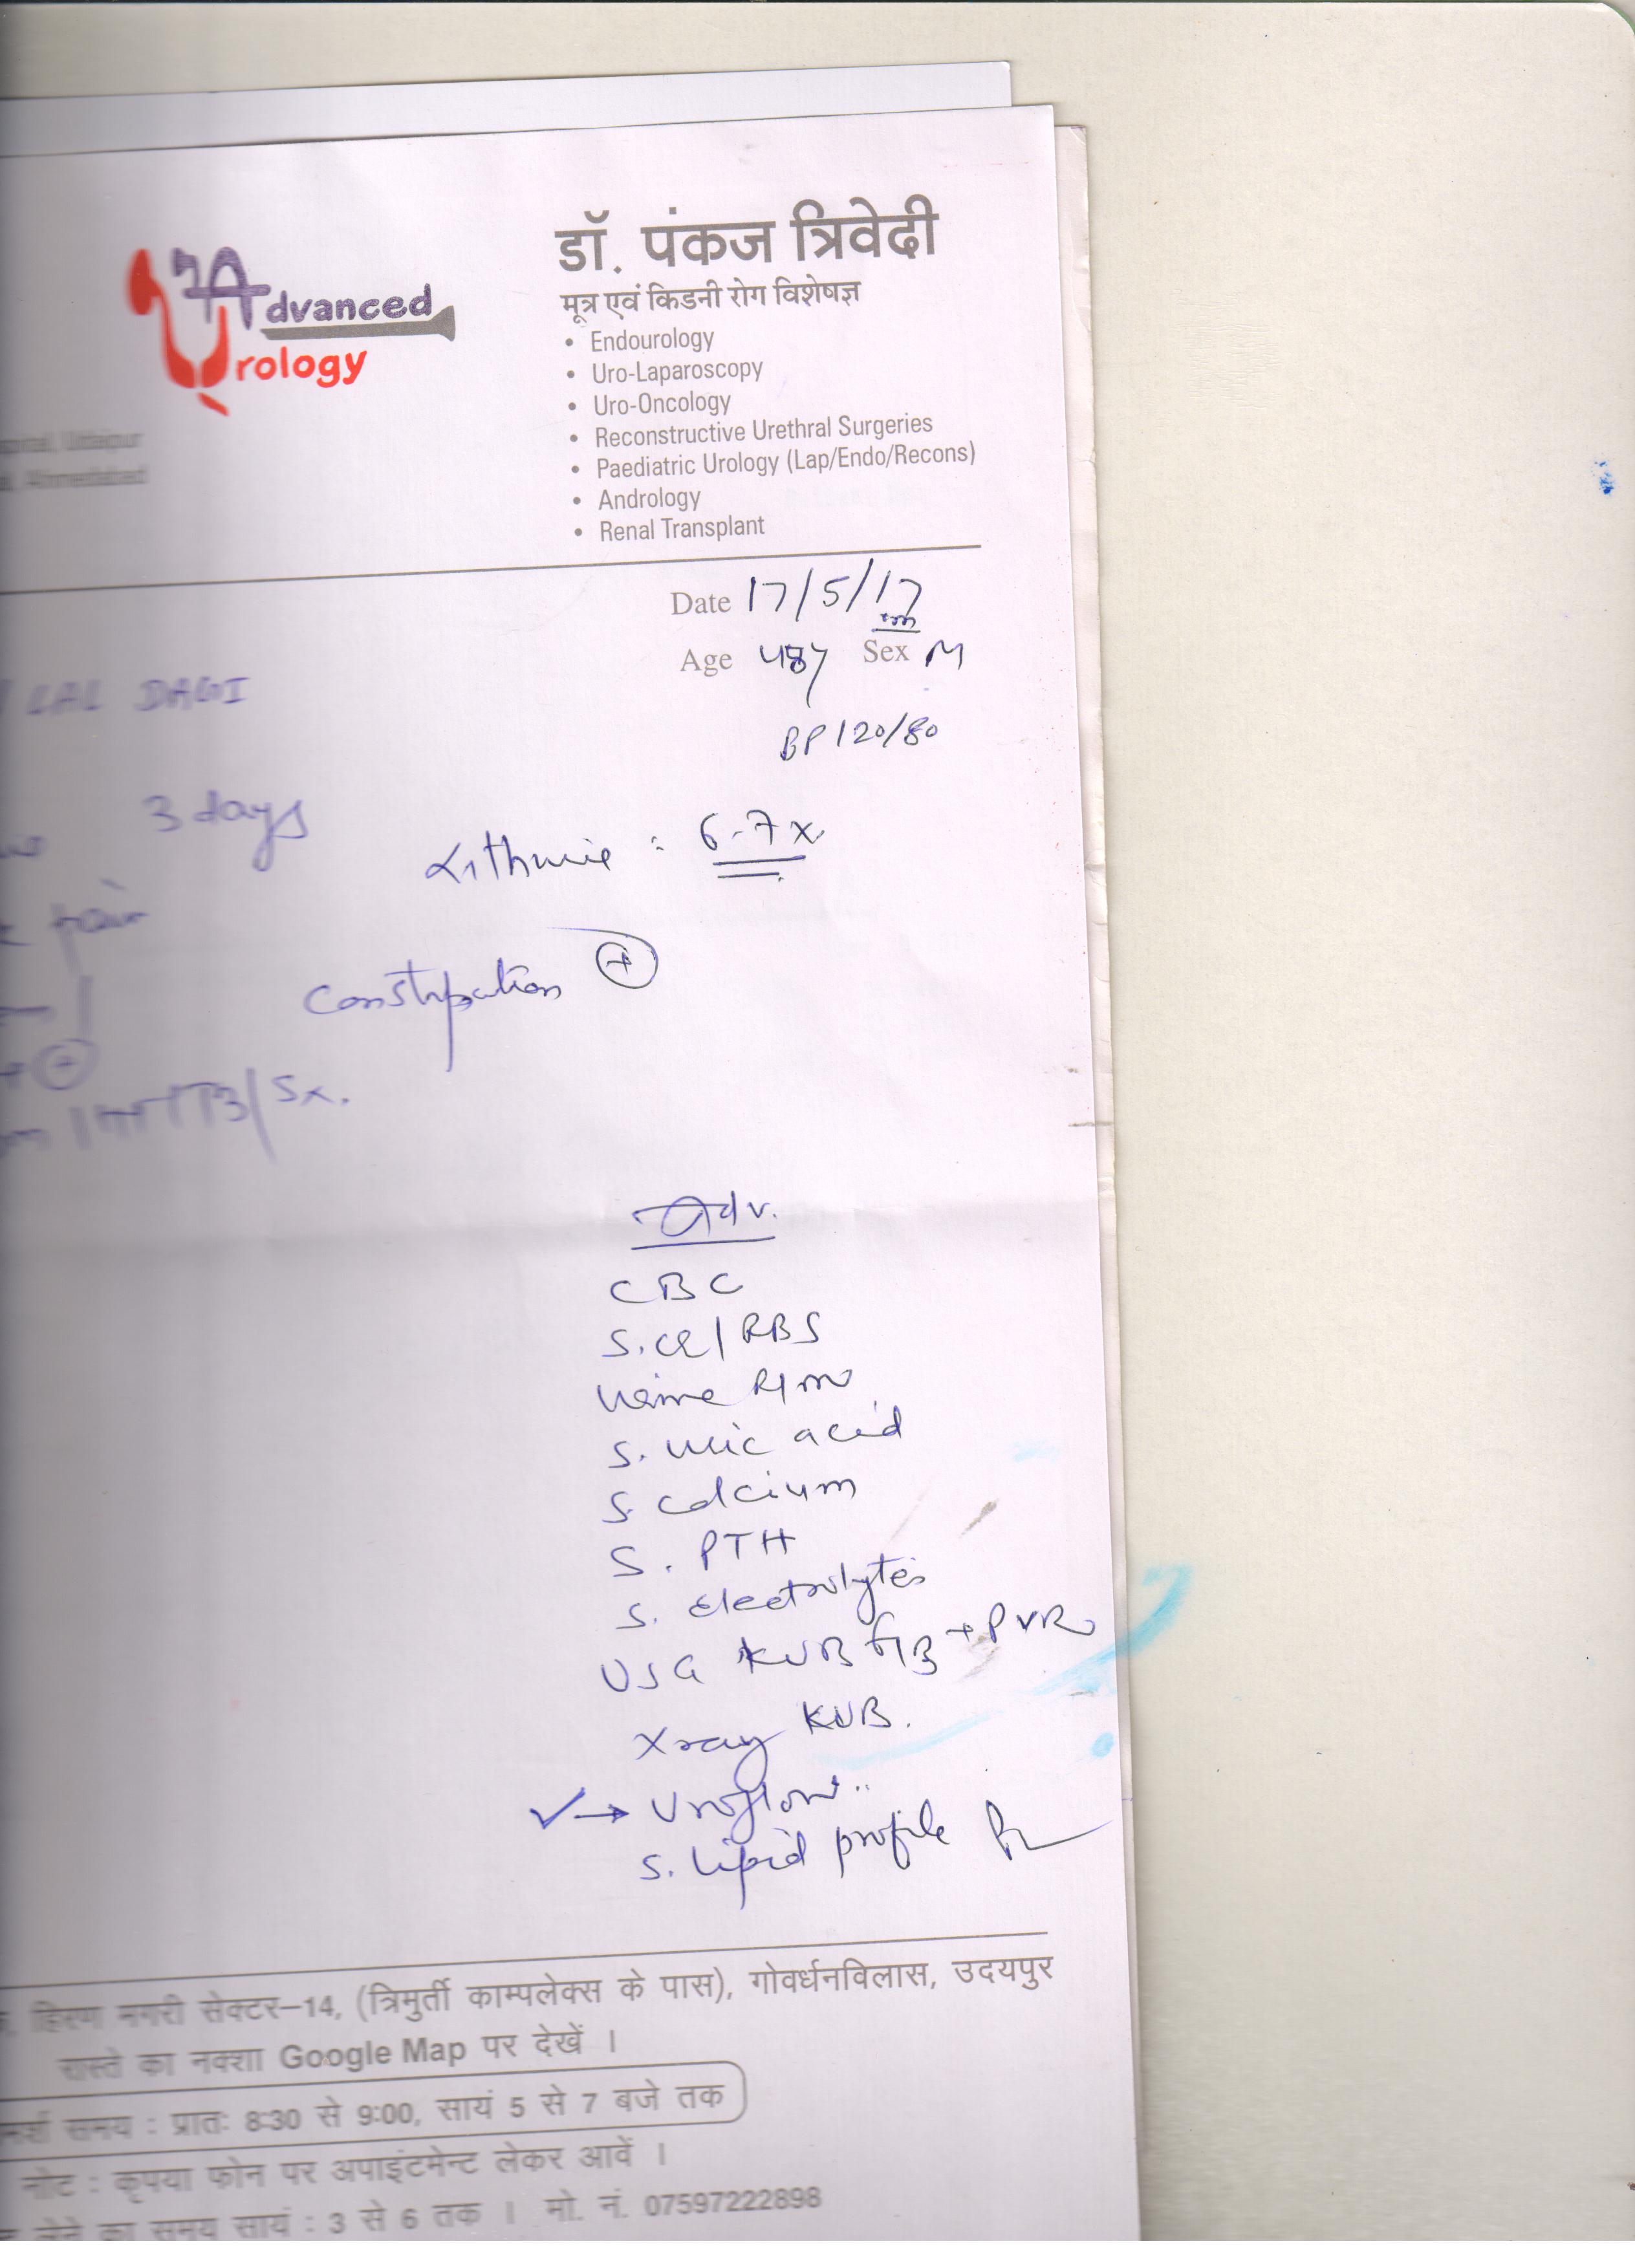 Advanced
Urology
डॉ. पंकज त्रिवेदी
मूत्र एवं किडनी रोग विशेषज्ञ
• Endourology
• Uro-Laparoscopy
• Uro-Oncology
• Reconstructive Urethral Surgeries
• Paediatric Urology (Lap/Endo/Recons)
• Andrology
• Renal Transplant
Udaipur
Ahmedabad
Date 17/5/17
Age 48y Sex M
LAL
BP 120/80
3 days
: 6-7x
pain
Constipation +
Adv.
CBC
S.CR/RBS
Urine R/m
S. uric acid
S. calcium
S. PTH
S. Electrolytes
USG KUB + PVR
Xray KUB.
✓→ Uroflow..
S. Lipid profile
हिरण मगरी सेक्टर–14, (त्रिमुर्ती काम्पलेक्स के पास), गोवर्धनविलास, उदयपुर
रास्ते का नक्शा Google Map पर देखें ।
समय : प्रातः 8:30 से 9:00, सायं 5 से 7 बजे तक
नोट : कृपया फोन पर अपाइंटमेन्ट लेकर आवें ।
लेने का समय सायं : 3 से 6 तक । मो. नं. 07597222898